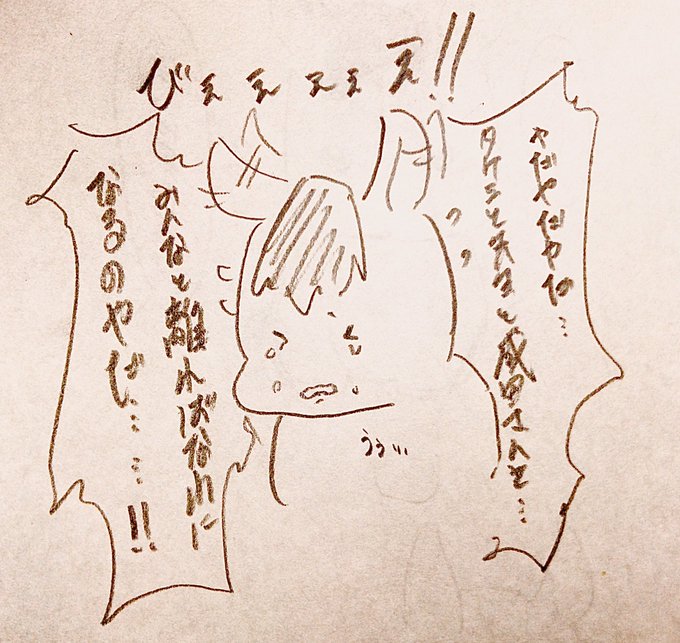 びぇぇぇぇえ!!
やだやだやだ…
タケミと先生と成田さんと…
みんなと離ればなれに
なるのやだ……!!